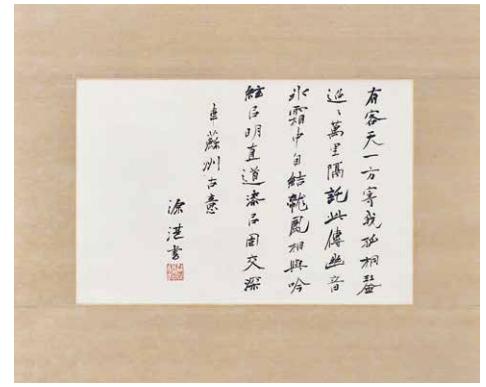 有客天一方寄我孤桐琴
迢々萬里隔託此傳幽音
氷霜中自結龍鳳相與吟
絃㠯明直道漆㠯固交深
韋蘇州古意
書